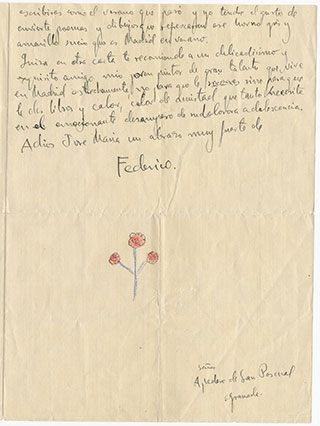 escribires como el verano que pasó y yo tendré el gusto de
enviarte poemas y dibujos que refrescarán ese horno gris y
amarillo sucio que es Madrid en verano.
en otra carta te recomendaré a un delicadísimo y
exquisito amigo mío, gran pintor de gran talento que vive
en Madrid no para que le sino para que
le des libros y calor, calor de amistad que tanto necesita
en el emocionante desamparo de adolescencia.
Adios Jose Maria un abrazo muy fuerte de
Federico.
Señas
Apeadero de San Pascual
Granada.